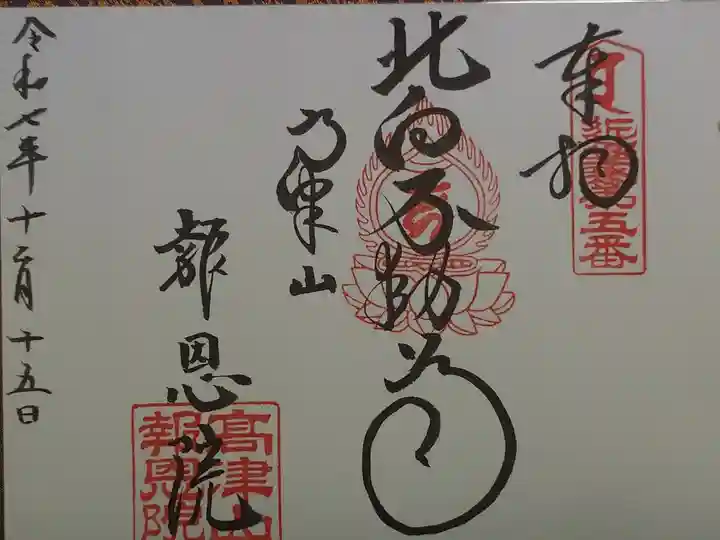 奉拝
近畿第五番
北向不動尊
高津山
報恩院
高津山
報恩院
令和七年十二月十五日